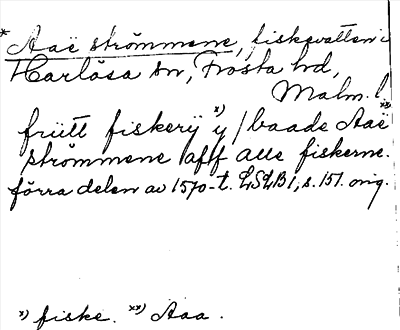 * Aaë strömmene, fiskevatten i
Harlösa sn, Frosta hd,
Malm. l.
friitt fiskerÿ x) y / baade Aaë xx)
strömmene aff alle fiskerne.
förra delen av 1570-t. LSLB 1, s. 151. orig.
x) fiske. xx) Aaa.